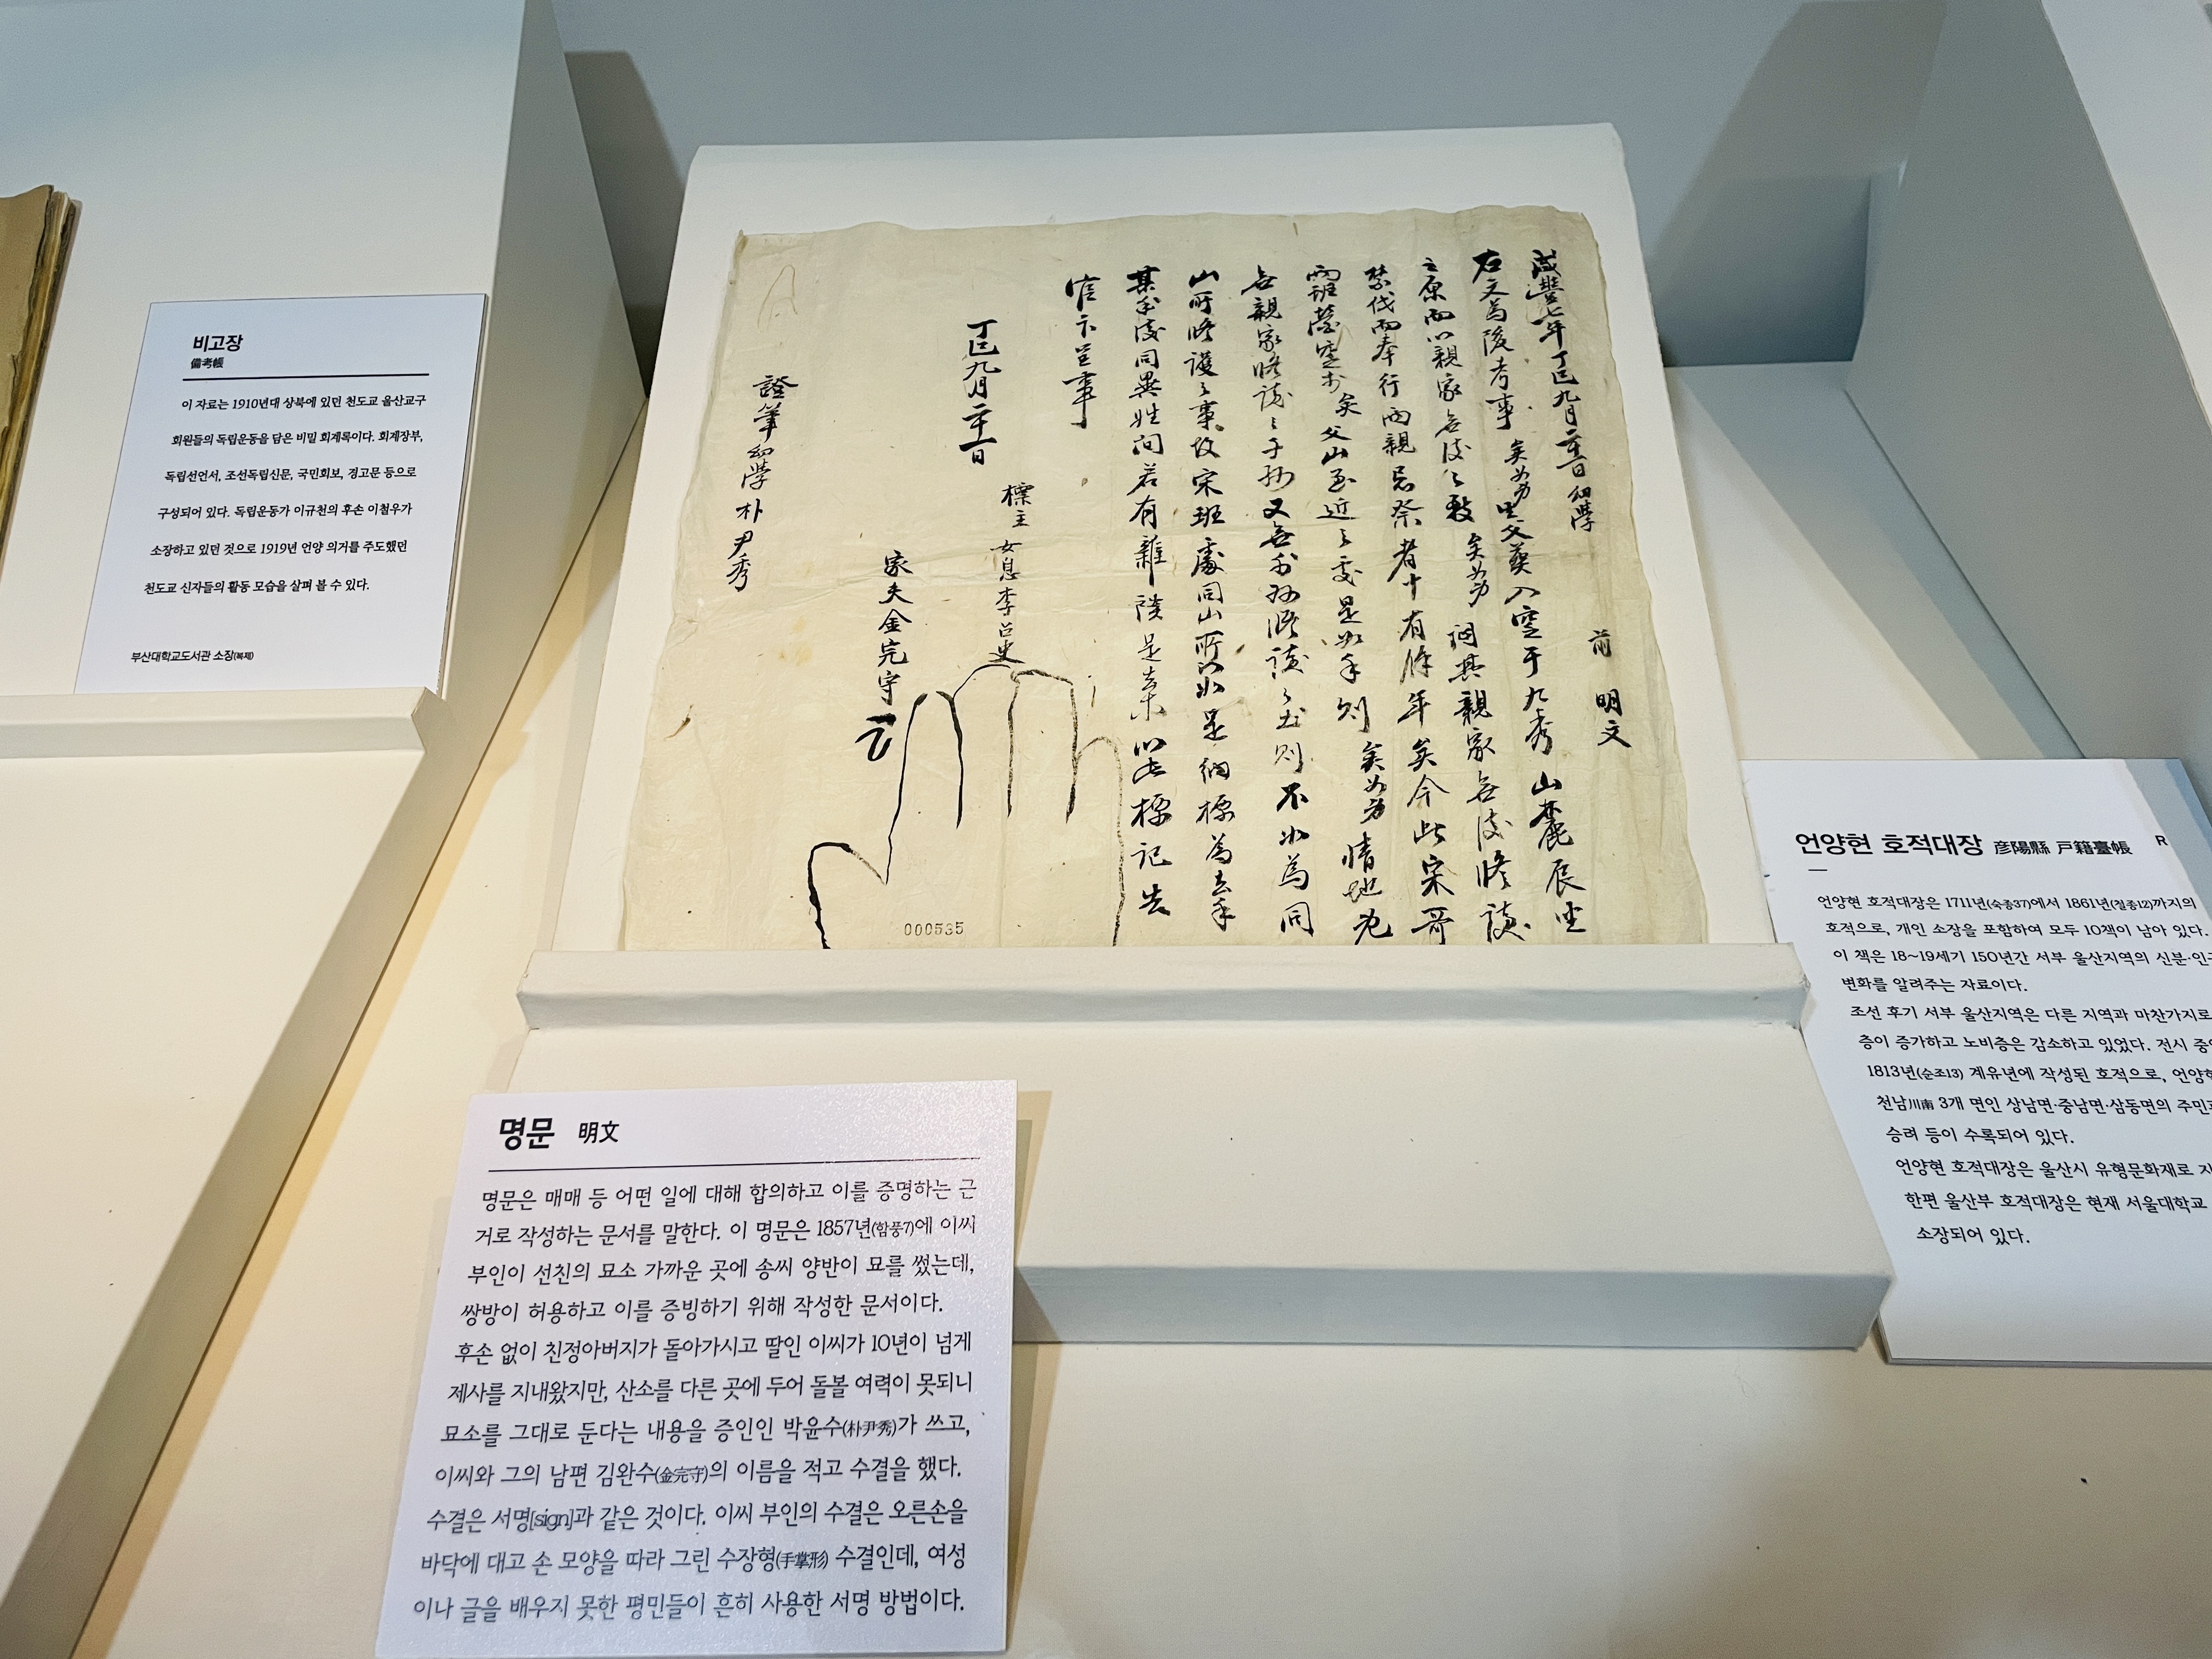 비고장
備考帳
이 자료는 1910년대 상북에 있던 천도교 울산교구
회원들의 독립운동을 담은 비밀 회계록이다. 회계장부,
독립선언서, 조선독립신문, 국민회보, 경고문 등으로
구성되어 있다. 독립운동가 이규천의 후손 이철우가
소장하고 있던 것으로 1919년 언양 의거를 주도했던
천도교 신자들의 활동 모습을 살펴 볼 수 있다.
부산대학교도서관 소장(복제)
咸豊七年丁巳九月二十一日 幼學 前 明文
右文爲後考事 矣身 父葬入窆于九秀山麓辰坐
之原而以親家無後之致 矣身 親家無後修護
禁伐而奉行兩親忌祭者十有餘年矣今此宋哥
兩班營窆於矣父山至近之處是如乎則矣身情地
無親家修護之子孫又無 修護之 則不 爲同
山所修護之事故宋班處同山所 是遣 標爲去乎
某 後同異姓間若有雜 是 以此標記告
官卞呈事
丁巳九月二十一日
標主 女息李召史
家夫金完守
證筆幼學朴尹秀
000535
명문 明文
명문은 매매 등 어떤 일에 대해 합의하고 이를 증명하는 근
거로 작성하는 문서를 말한다. 이 명문은 1857년(함풍7)에 이씨
부인이 선친의 묘소 가까운 곳에 송씨 양반이 묘를 썼는데,
쌍방이 허용하고 이를 증빙하기 위해 작성한 문서이다.
후손 없이 친정아버지가 돌아가시고 딸인 이씨가 10년이 넘게
제사를 지내왔지만, 산소를 다른 곳에 두어 돌볼 여력이 못되니
묘소를 그대로 둔다는 내용을 증인인 박윤수(朴尹秀)가 쓰고,
이씨와 그의 남편 김완수(金完守)의 이름을 적고 수결을 했다.
수결은 서명[sign]과 같은 것이다. 이씨 부인의 수결은 오른손을
바닥에 대고 손 모양을 따라 그린 수장형(手掌形) 수결인데, 여성
이나 글을 배우지 못한 평민들이 흔히 사용한 서명 방법이다.
언양현 호적대장 彦陽縣 戶籍臺帳 R
언양현 호적대장은 1711년(숙종37)에서 1861년(철종12)까지의
호적으로, 개인 소장을 포함하여 모두 10책이 남아 있다.
이 책은 18~19세기 150년간 서부 울산지역의 신분·인구
변화를 알려주는 자료이다.
조선 후기 서부 울산지역은 다른 지역과 마찬가지로
층이 증가하고 노비층은 감소하고 있었다. 전시 중
1813년(순조13) 계유년에 작성된 호적으로, 언양현
천남川南 3개 면인 상남면·중남면·삼동면의 주민
승려 등이 수록되어 있다.
언양현 호적대장은 울산시 유형문화재로
한편 울산부 호적대장은 현재 서울대학교
소장되어 있다.